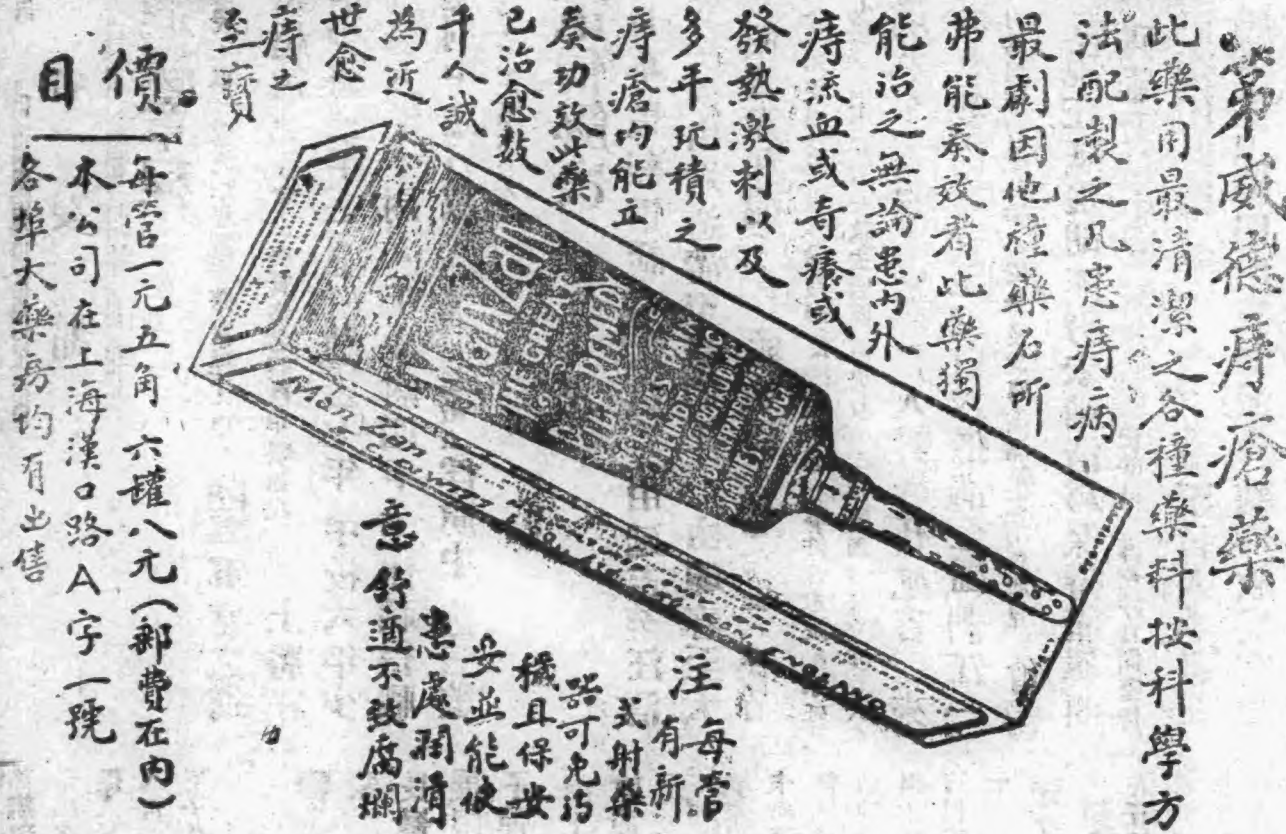 第威德痔瘡藥
此藥用最清潔之各種藥料按科學方
法配製之凡患痔病
最劇因他種藥石所
弗能奏效者此藥獨
能治之無論患內外
痔流血或奇癢或
發熱激刺以及
多年玩積之
痔瘡均能立
奏功效此藥
已治愈數
千人誠
為近
世愈
痔之
至寶
ManZan
THE GREAT
PILE REMEDY
RELIEVES PAIN
Man Zan
注
每管
有新
式射藥
器可免污
穢且保安
妥並能使
患處潤滑
意舒適不致腐爛
價目
每管一元五角 六罐八元(郵費在內)
本公司在上海漢口路A字一號
各埠大藥房均有出售